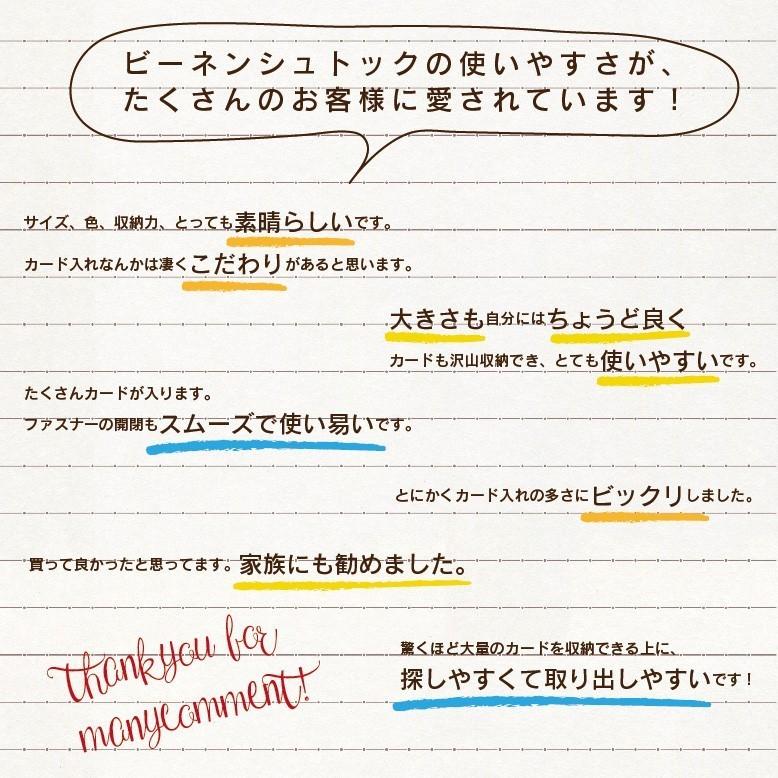 ビーネンシュトックの使いやすさが、
たくさんのお客様に愛されています！
サイズ、色、収納力、とっても素晴らしいです。
カード入れなんかは凄くこだわりがあると思います。
大きさも自分にはちょうど良く
カードも沢山収納でき、とても使いやすいです。
たくさんカードが入ります。
ファスナーの開閉もスムーズで使い易いです。
とにかくカード入れの多さにビックリしました。
買って良かったと思ってます。家族にも勧めました。
驚くほど大量のカードを収納できる上に、
探しやすくて取り出しやすいです！
thankyou for
manycomment!